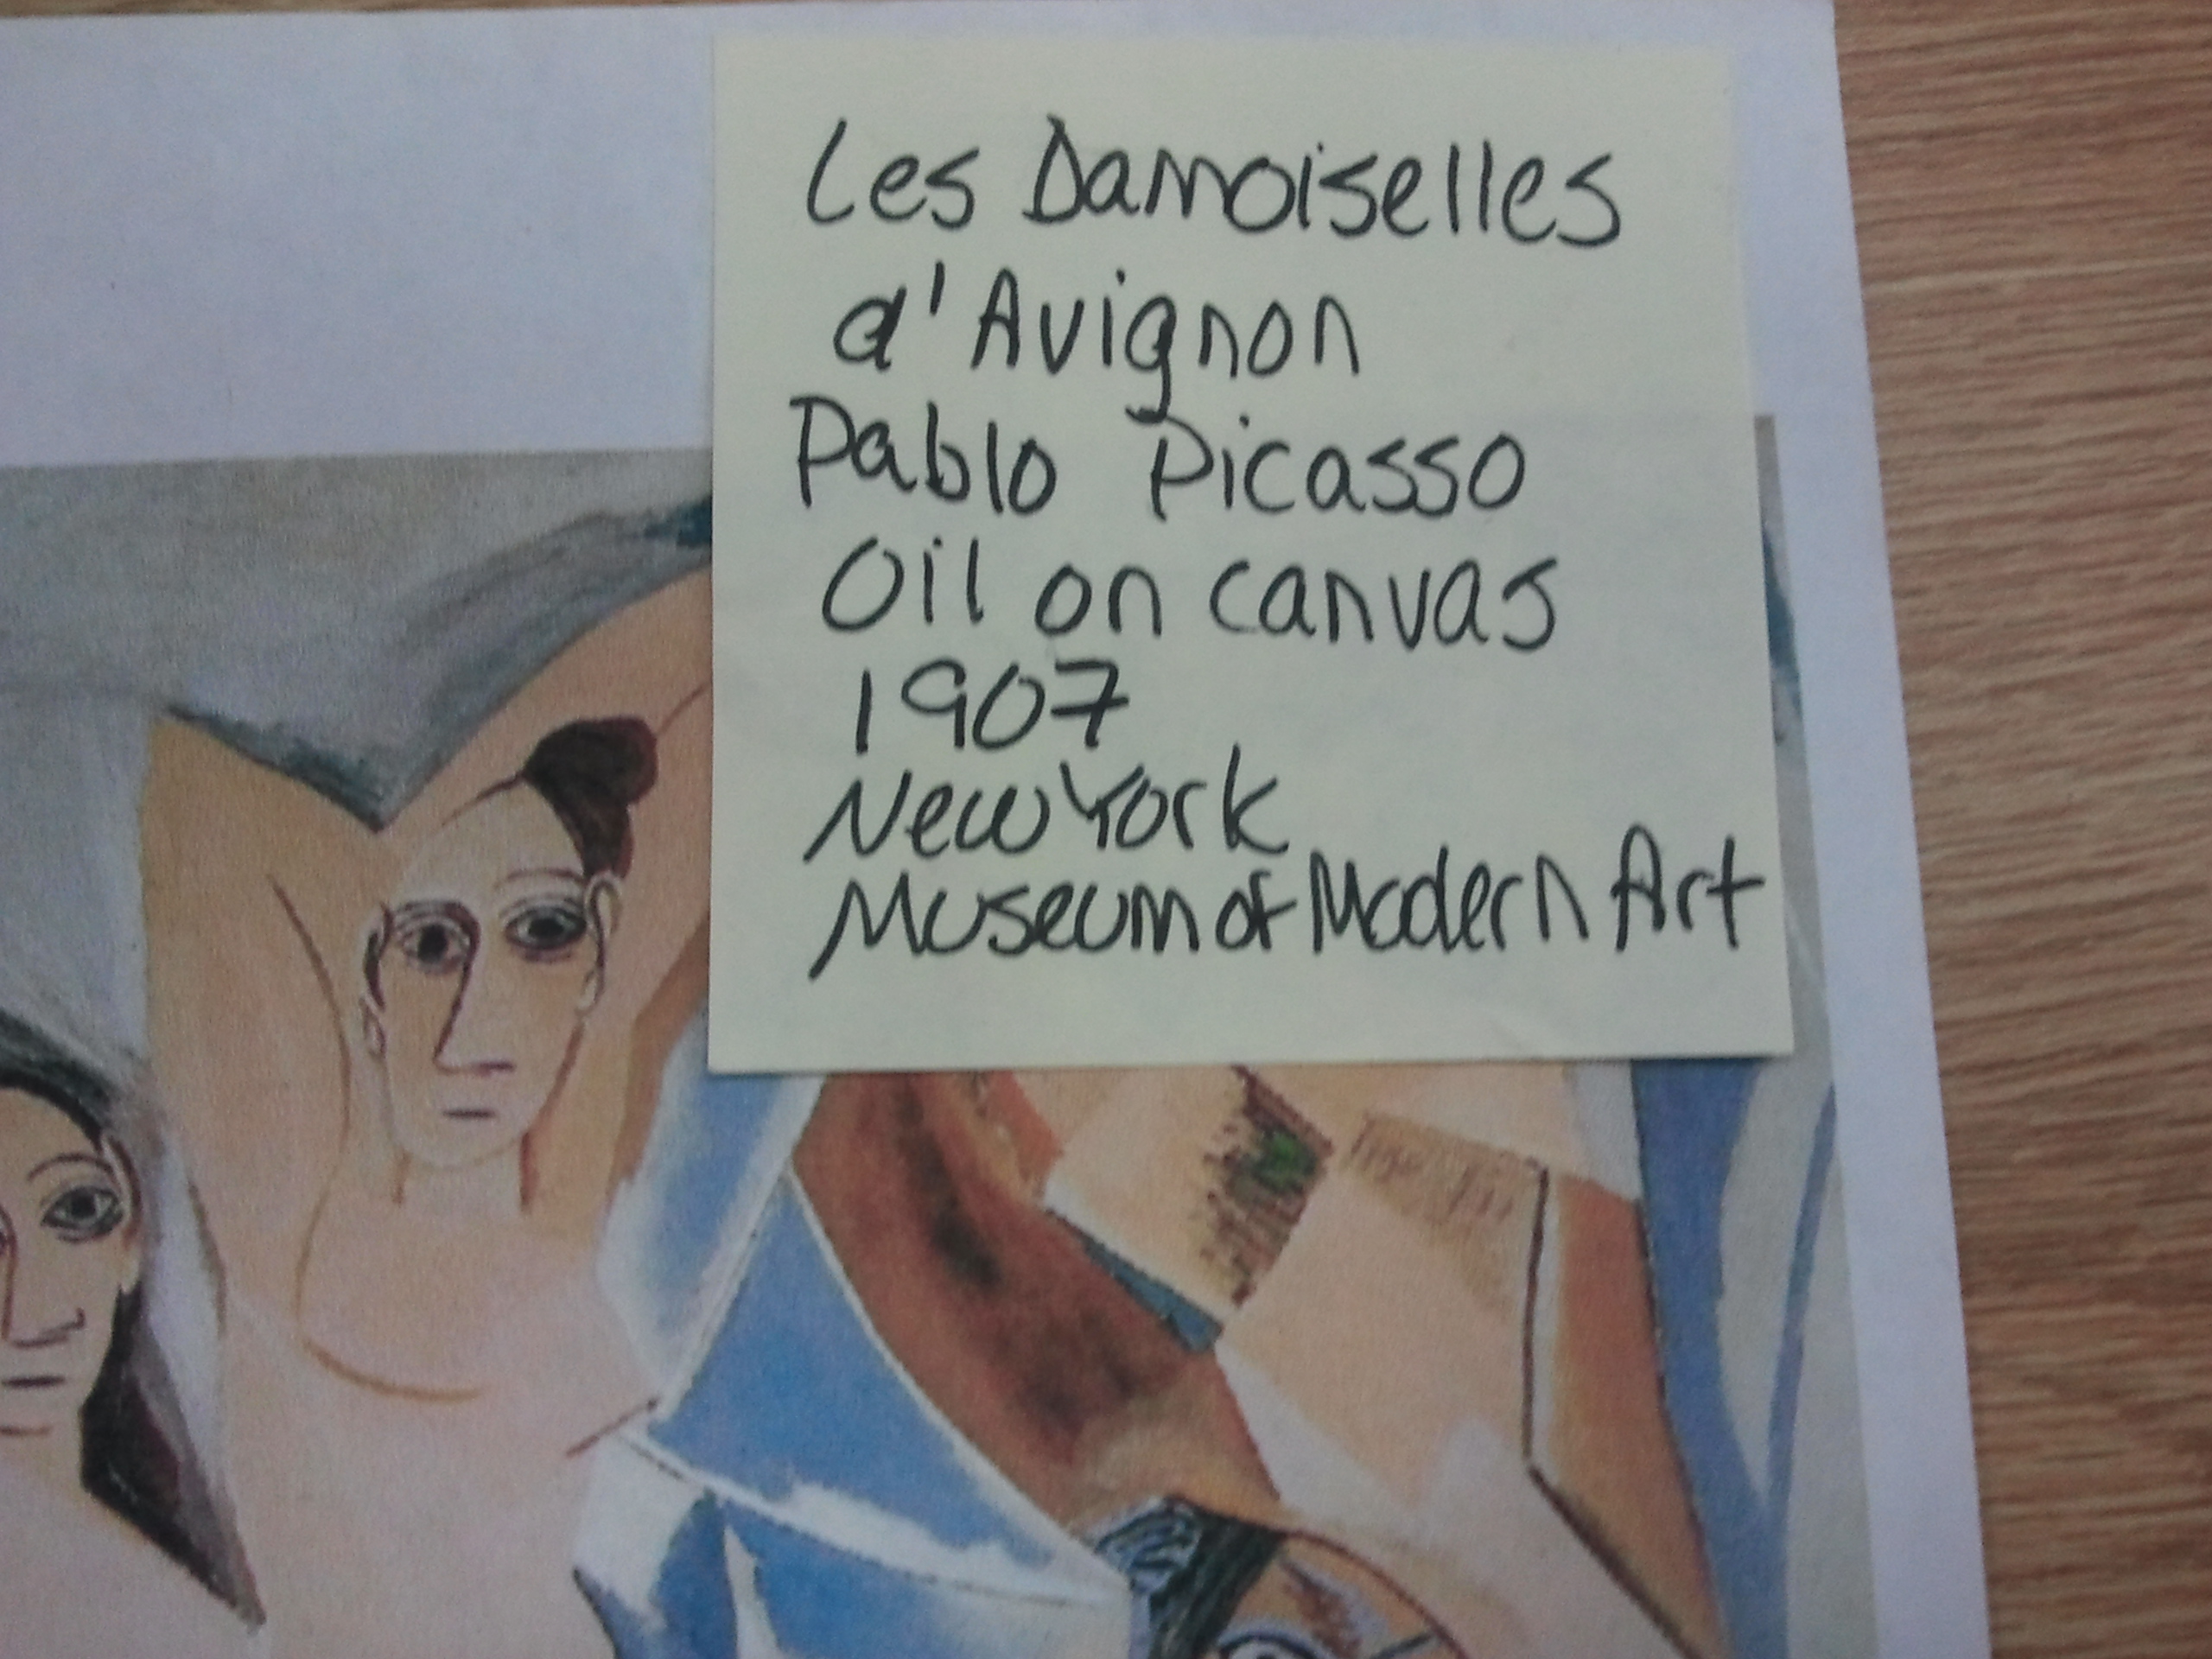 Les Damoiselles
d'Avignon
Pablo Picasso
Oil on canvas
1907
New York
Museum of Modern Art